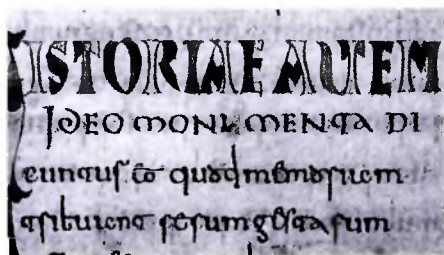 ISTORIAE AUTEM
IDEO MONIMENTA DI
cuntur eo quod memoriam
tribuent rerum gestarum